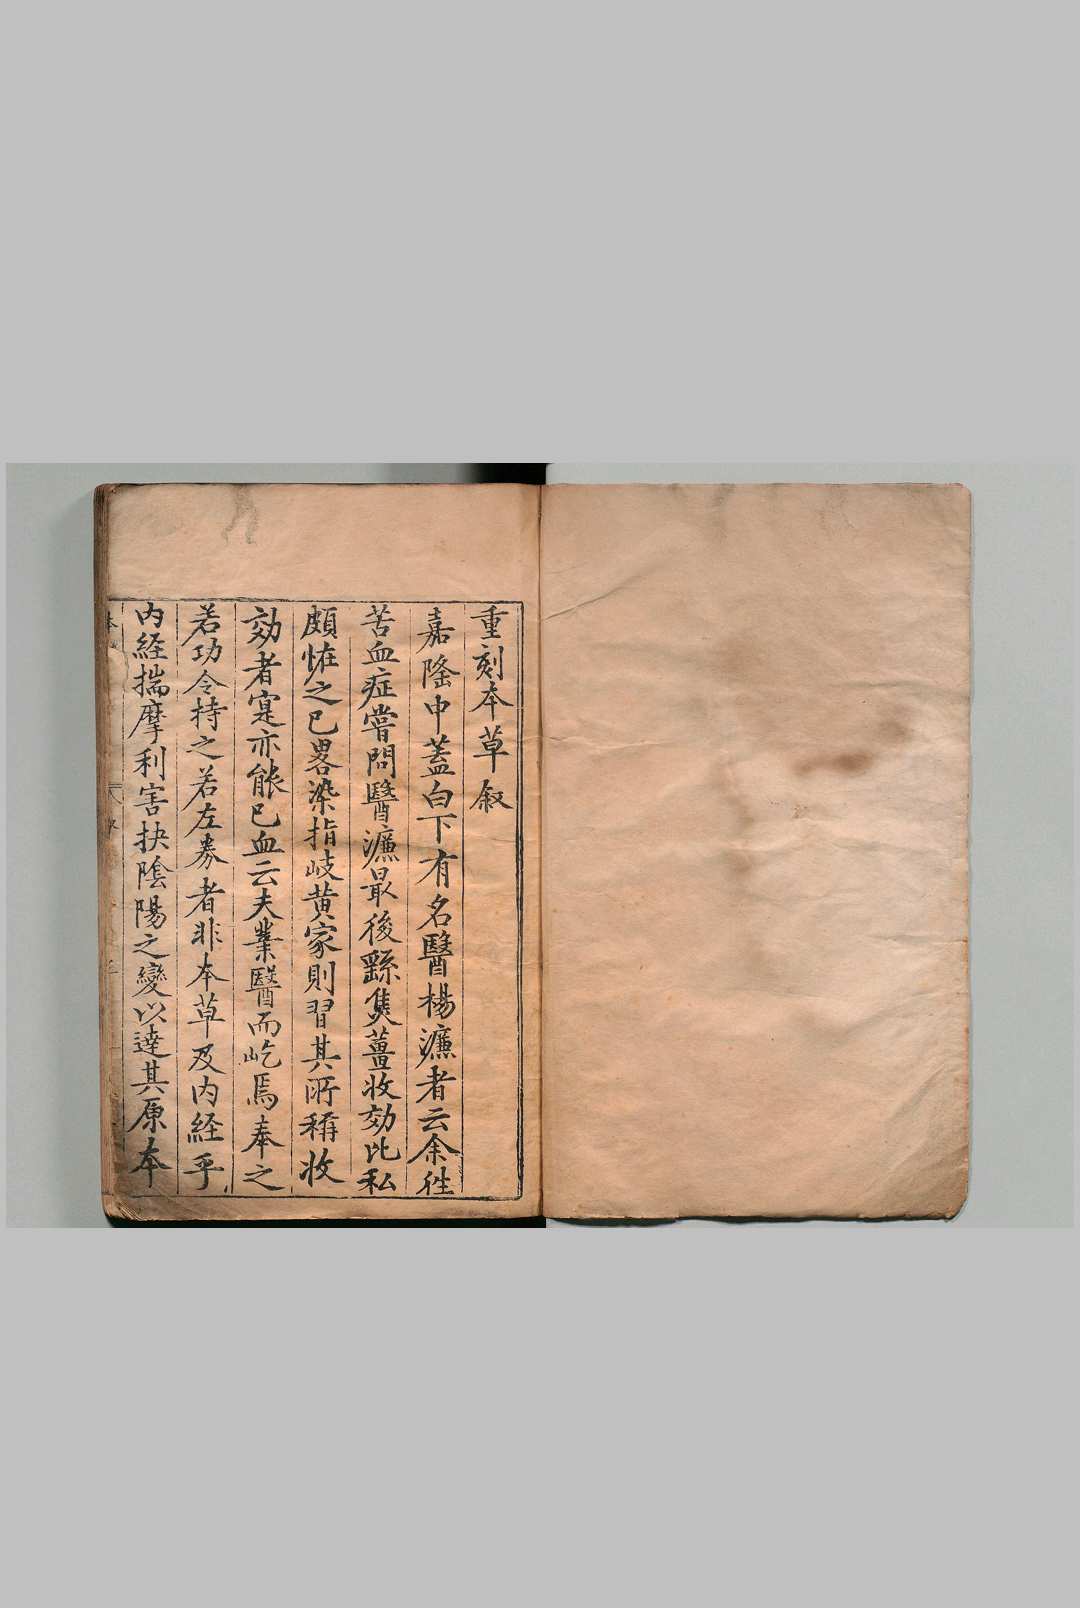 重刻本草叙
嘉隆中蓋白下有名醫楊濂者云余徃
苦血症嘗問醫濂最後繇隻薑收効比私
頗恠之已畧染指岐黄家則習其所稱收
効者寔亦能已血云夫業醫而屹焉奉之
若功令持之若左券者非本草及内経乎
内経揣摩利害抉陰陽之變以達其原本